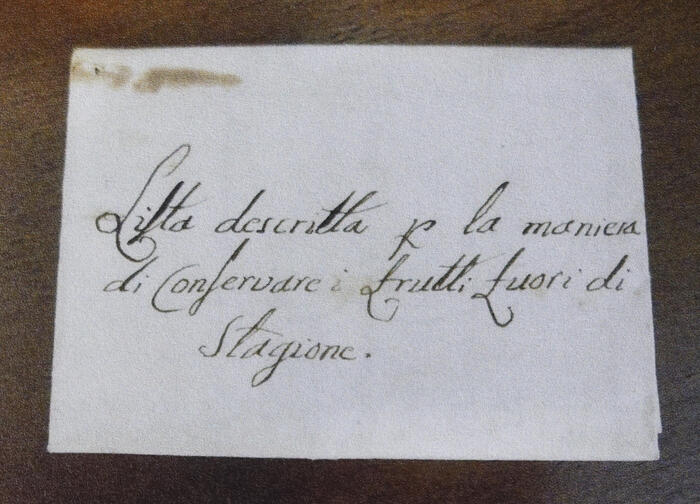 Lista descritta p la maniera
di Conservare i frutti fuori di
Stagione.